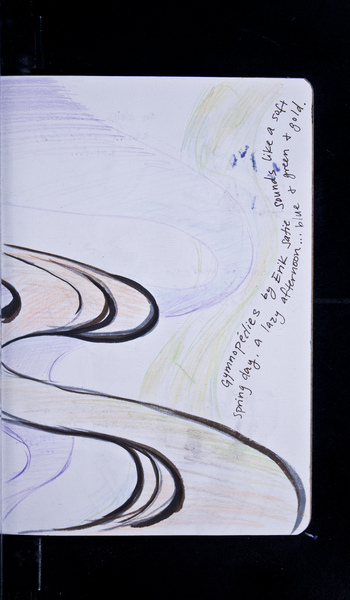 Gymnopédies by Erik Satie sounds like a soft
spring day. a lazy afternoon... blue & green & gold.